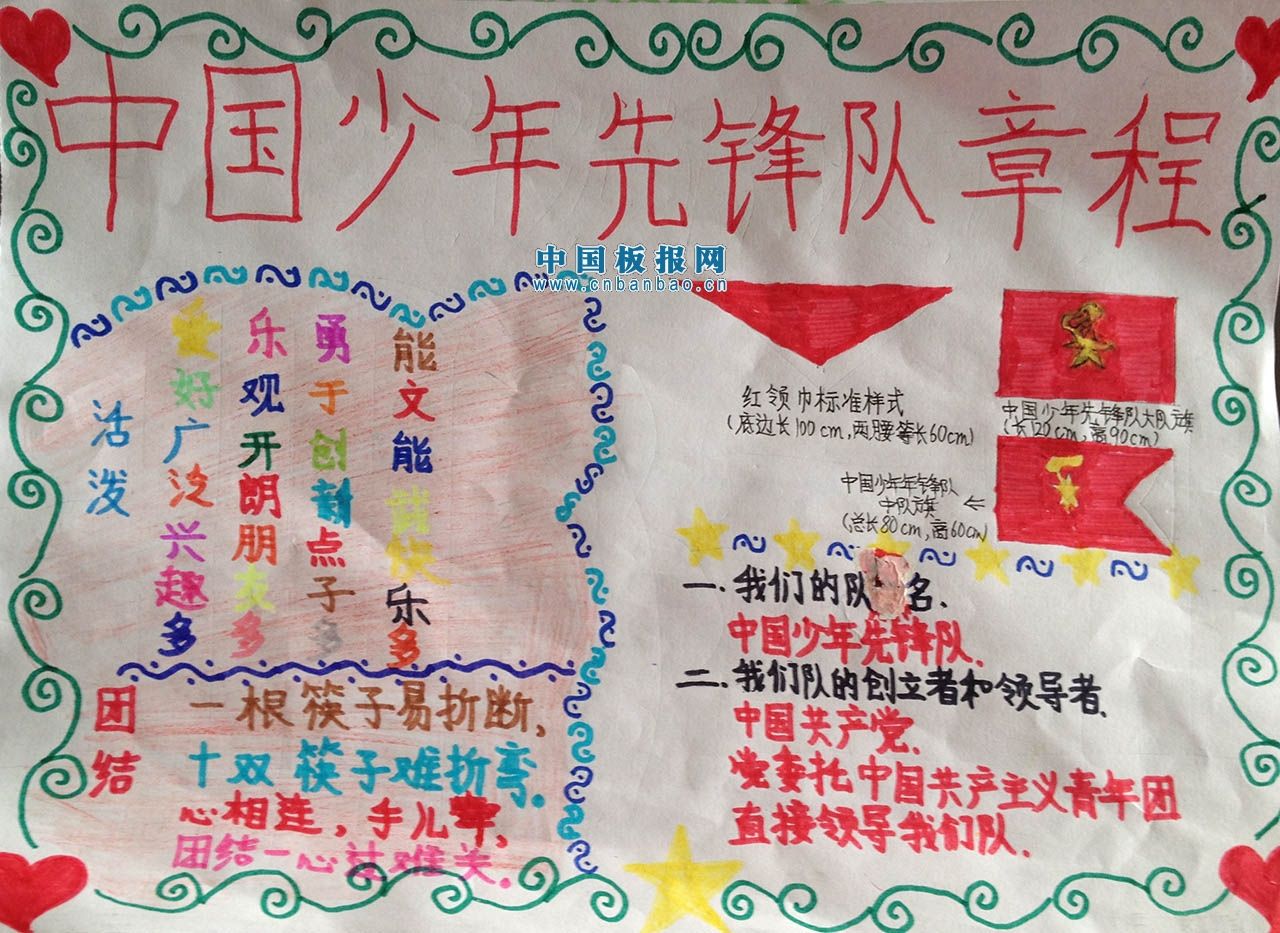 中国少年先锋队章程
中国板报网
www.cnbanbao.cn
活泼
爱好广泛兴趣多
乐观开朗朋友多
勇于创新点子多
能文能武快乐多
团结
一根筷子易折断,
十双筷子难折弯。
心相连,手儿牵,
团结一心过难关。
红领巾标准样式
(底边长100cm,两腰等长60cm)
中国少年先锋队大队旗
(长120cm,高90cm)
中国少年年锋队
中队旗
(总长80cm,高60cm)
一.我们的队 名.
中国少年先锋队.
二.我们队的创立者和领导者.
中国共产党.
党委托中国共产主义青年团
直接领导我们队.